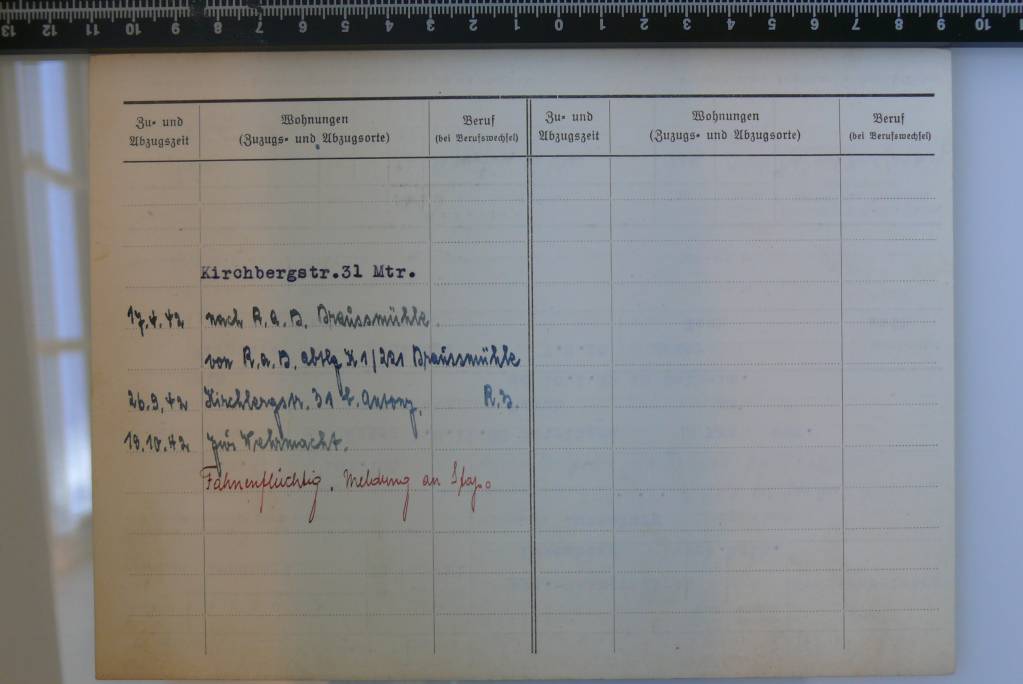 Zu- und
Abzugszeit
Wohnungen
(Zuzugs- und Abzugsorte)
Beruf
(bei Berufswechsel)
Zu- und
Abzugszeit
Wohnungen
(Zuzugs- und Abzugsorte)
Beruf
(bei Berufswechsel)
Kirchbergstr.31 Mtr.
17.4.42 nach R.a.D. Braussmühle.
von R.a.D. abtlg K1/281 Braussmühle
26.9.42 Kirchbergstr. 31 b. R.Z.
19.10.42 zur Wehrmacht.
Fahnenflüchtig, Meldung an